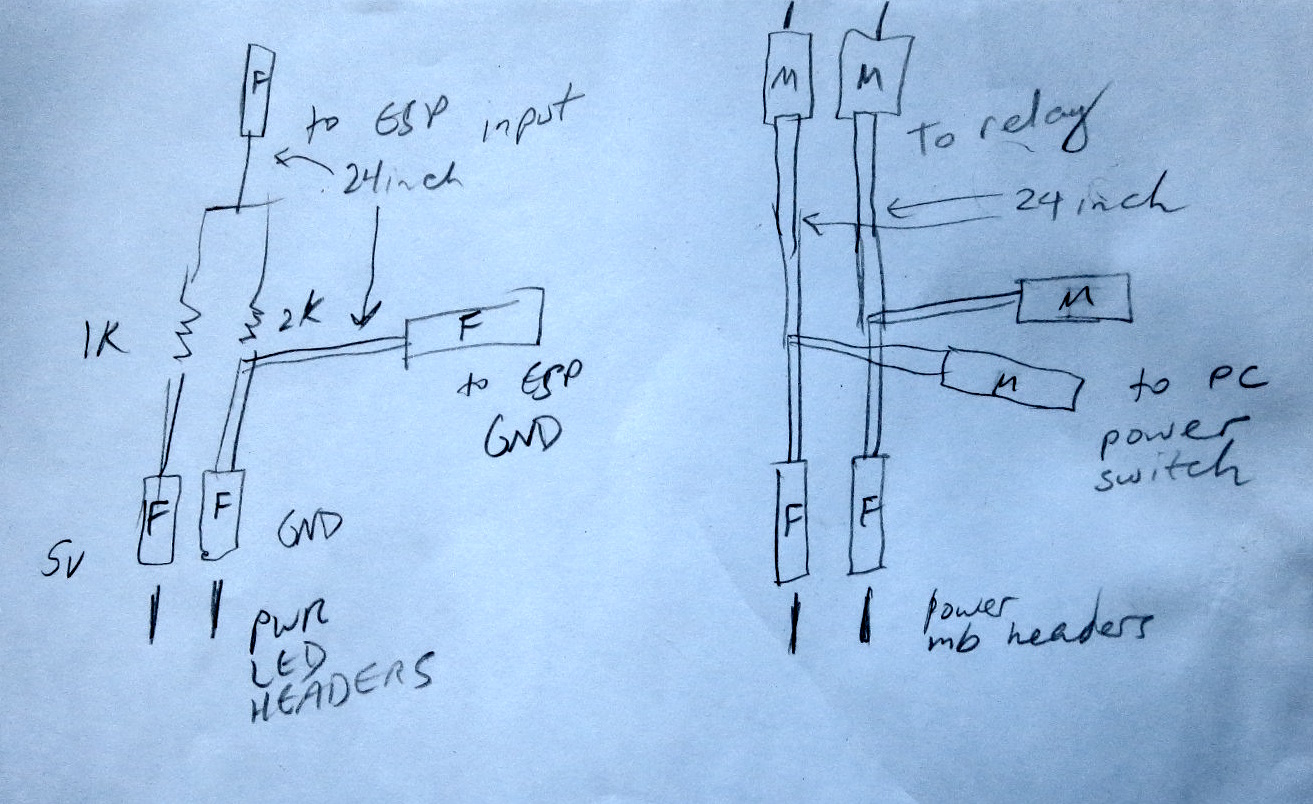 F
to ESP input
24 inch
1K
2K
F
to ESP
GND
F
F
5V
GND
PWR
LED
HEADERS
M
M
To relay
24 inch
M
M
to PC
power
switch
F
F
power
mb headers